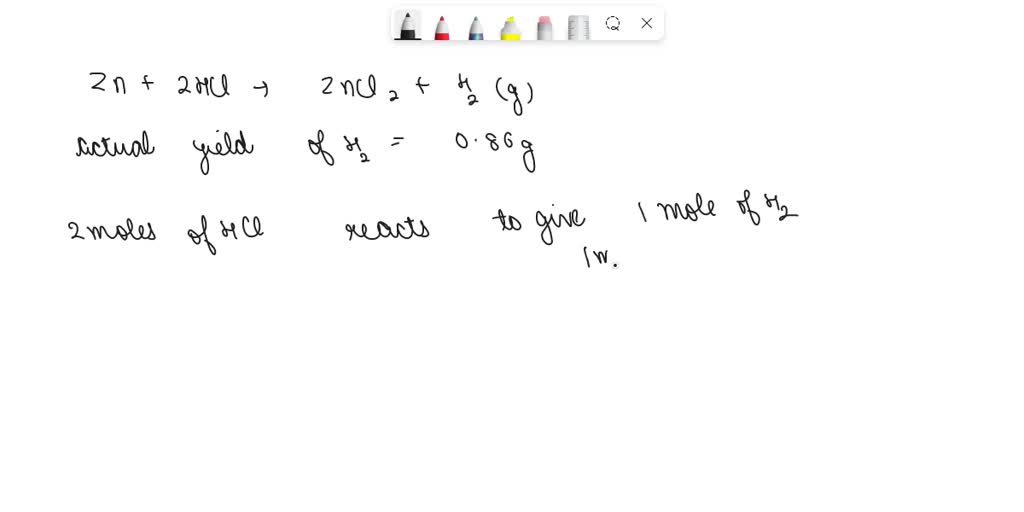 Zn + 2HCl → ZnCl₂ + H₂ (g)
actual yield of H₂ = 0.86g
2moles of HCl reacts to give 1 mole of H₂
1m.